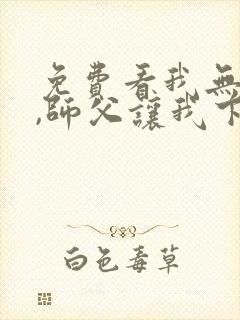 免費看我無
,師父讓我下
白色毒草